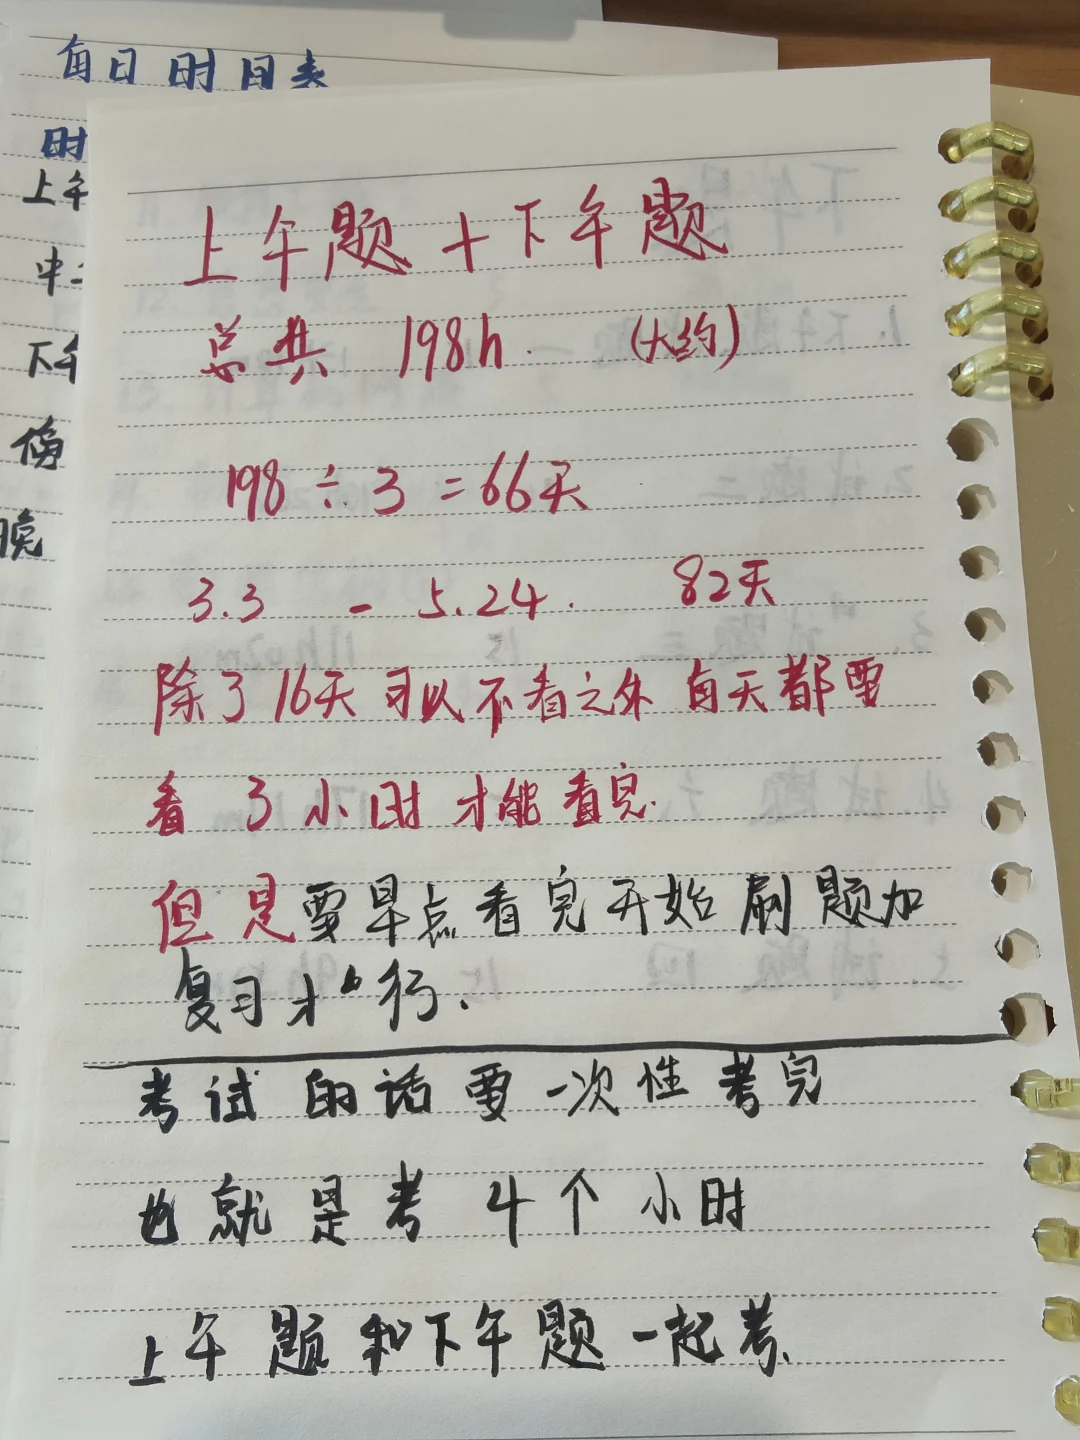 每日时间表
时
上午
中
下午
傍
晚
上午题+下午题
总共 198h. (大约)
198÷3=66天
3.3 - 5.24. 82天
除了16天可以不看之外每天都要
看3小时才能看完.
但是要早点看完开始刷题加
复习才行.
考试的话要一次性考完
也就是考4个小时
上午题和下午题一起考.